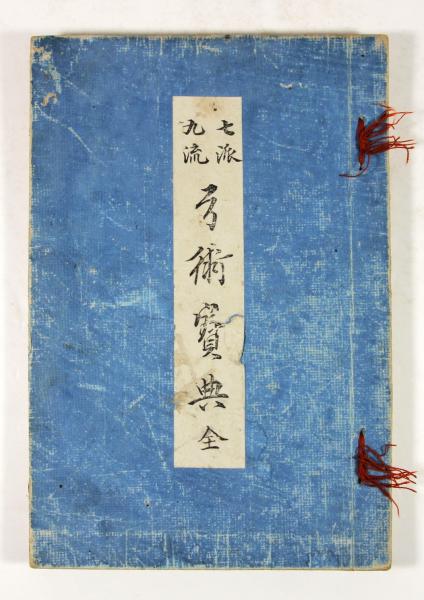 七派
九流
弓術寶典全